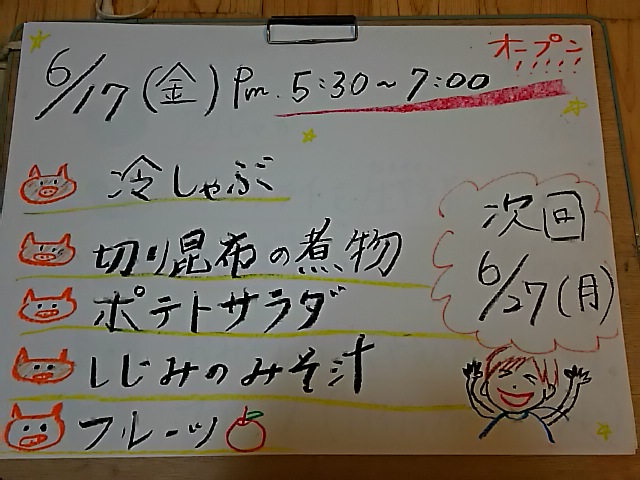 オープン!!!!!
6/17(金) Pm. 5:30~7:00
冷しゃぶ
切り昆布の煮物
ポテトサラダ
しじみのみそ汁
フルーツ
次回
6/27(月)